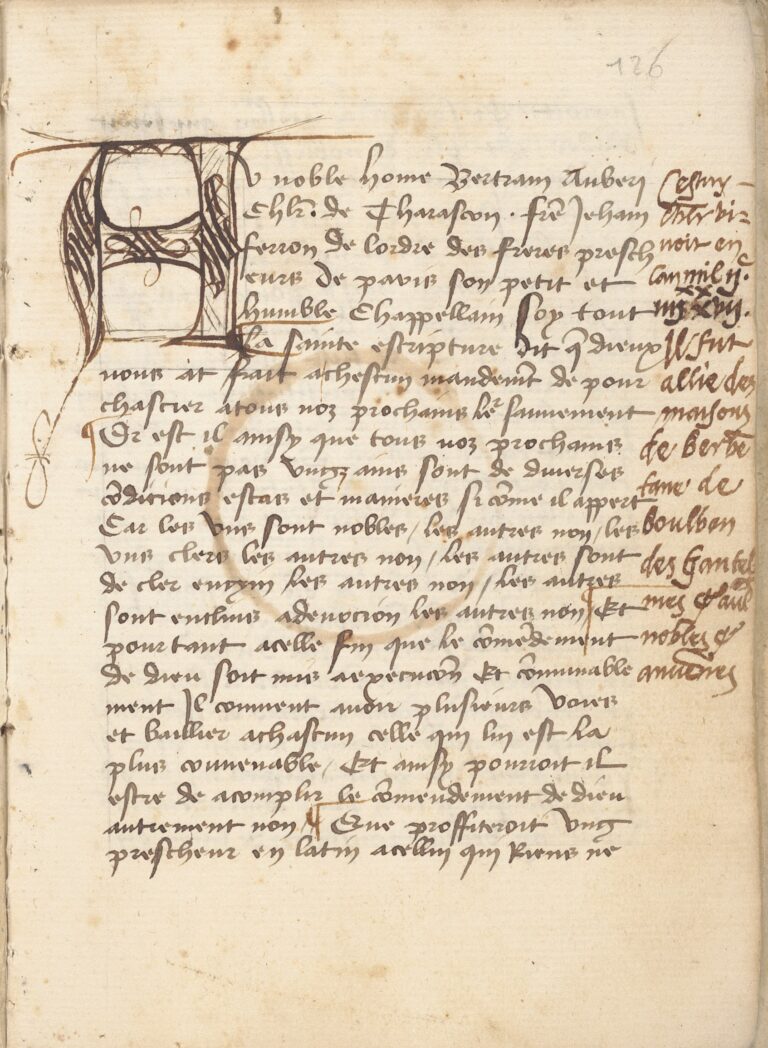 126
Au noble home Bertram Auberi
Chlr. de Tharascon. frere Jehan
ferron de lordre des freres presch
eurs de paris son petit et
humble Chappellain Soy tout
La sainte escripture dit q dieux
nous at fait achescun mandemt de pour
chascier atous noz prochains ler sauuement
Or est il ainsy que tous noz prochains
ne sont pas ungz ains sont de diuerses
cōdicions estas et manieres si cōme il appert
Car les uns sont nobles / les autres non / les
uns clers les autres non / les autres sont
de cler engyn / les autres non / les autres
sont enclins adeuocion les autres non / Et
pourtant acelle fin que le cōmēdement
de dieu soit mis aexecucōn Et conuinable
ment Il conuient auoir plusieurs voies
et baillier achascun celle qui lui est la
plus conuenable / Et ainsy pourroit il
estre de acomplir le cōmendement de dieu
autrement non / Que proffiteroit ung
prescheur en latin acellui qui Riens ne
Cestuy
viuoit en
lan mil ij c
iiij xx xvij.
Il fut
allie des
maisons
de Berbe
tane de
Boulbon
des Gantel
mes &
nobles &